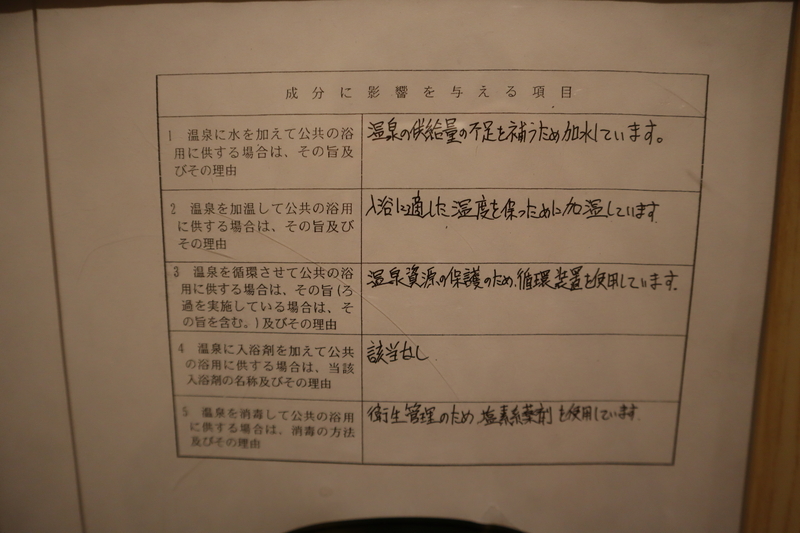 成分に影響を与える項目
1 温泉に水を加えて公共の浴
用に供する場合は、その旨及
びその理由
温泉の供給量の不足を補うため加水しています。
2 温泉を加温して公共の浴用
に供する場合は、その旨及び
その理由
入浴に適した温度を保つために加温しています
3 温泉を循環させて公共の浴
用に供する場合は、その旨(ろ
過を実施している場合は、そ
の旨を含む。)及びその理由
温泉資源の保護のため、循環装置を使用しています.
4 温泉に入浴剤を加えて公共
の浴用に供する場合は、当該
入浴剤の名称及びその理由
該当なし
5 温泉を消毒して公共の浴用
に供する場合は、消毒の方法
及びその理由
衛生管理のため 塩素系薬剤を使用しています.